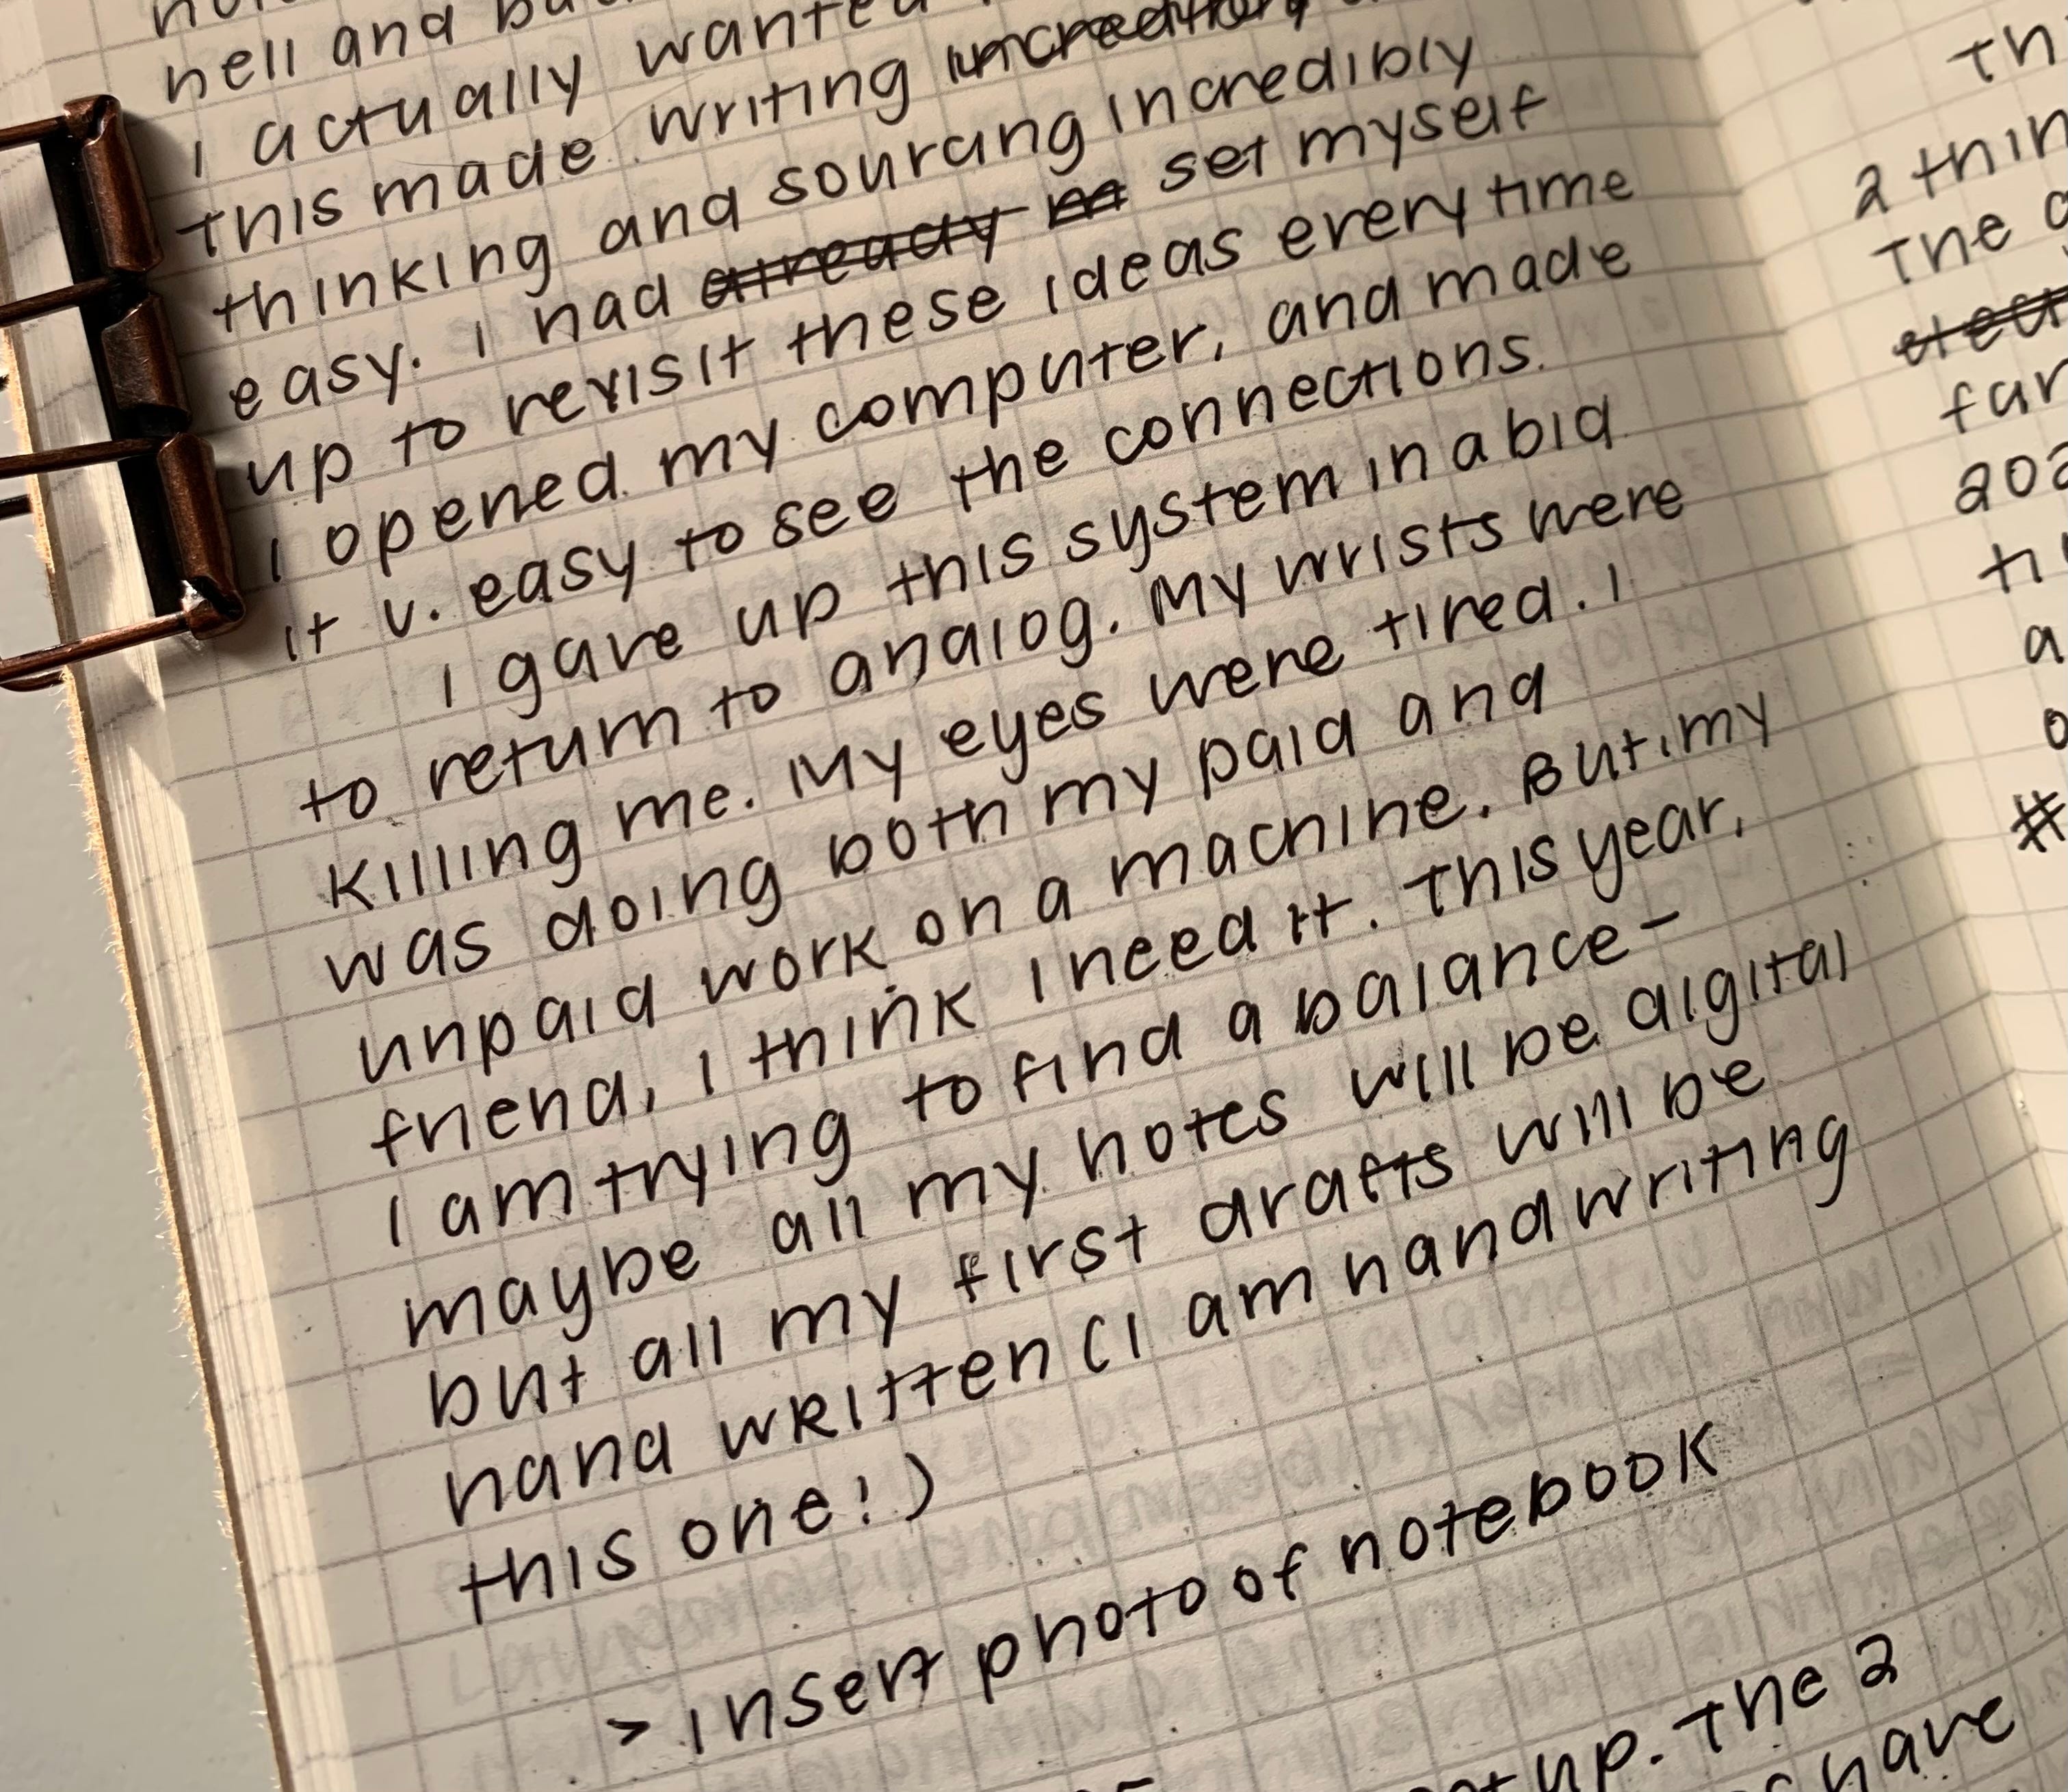 hell and
I actually wanted
this made writing incredibly
thinking and sourcing incredibly
easy. I had already set myself
up to revisit these ideas every time
I opened my computer, and made
it v. easy to see the connections.
I gave up this system in a bid
to return to analog. My wrists were
killing me. My eyes were tired. I
was doing both my paid and
unpaid work on a machine. But, my
friend, I think I need it. This year,
I am trying to find a balance -
maybe all my notes will be digital
but all my first drafts will be
hand written (I am handwriting
this one!)
> insert photo of notebook
up. The 2
have
2
the
202
a
#